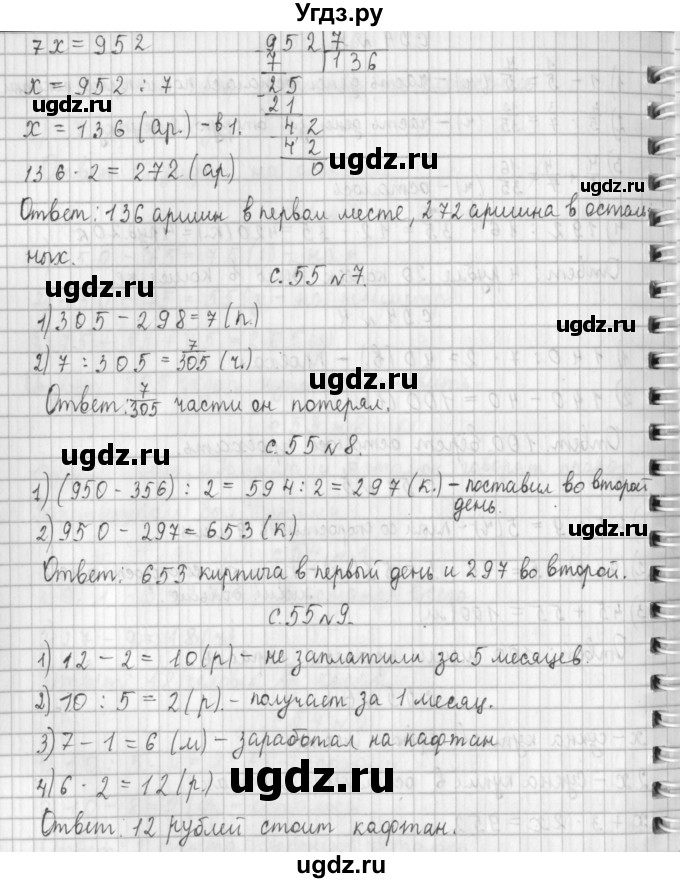 Угдз.ру
7x = 952   952 | 7
7   136
x = 952 : 7   25
ugdz.ru   21   ugdz.ru
x = 136 (ар.) - в 1.   42
42
136 · 2 = 272 (ар)   0   ugdz.ru
Ответ: 136 аршин в первом месте, 272 аршина в осталь
ных.
с. 55 № 7.
ugdz.ru
1) 305 - 298 = 7 (п.)
ugdz.ru
2) 7 : 305 = 7/305 (ч.)
ugdz.ru
Ответ: 7/305 части он потерял.
с. 55 № 8.
ugdz.ru
1) (950 - 356) : 2 = 594 : 2 = 297 (к.) - поставил во второй
день.
2) 950 - 297 = 653 (к)
ugdz.ru
Ответ: 653 кирпича в первый день и 297 во второй.
с. 55 № 9.
1) 12 - 2 = 10 (р) - не заплатили за 5 месяцев.
2) 10 : 5 = 2 (р). - получает за 1 месяц.
3) 7 - 1 = 6 (м) - заработал на кафтан
ugdz.ru
4) 6 · 2 = 12 (р.)
Ответ: 12 рублей стоит кафтан.
ugdz.ru